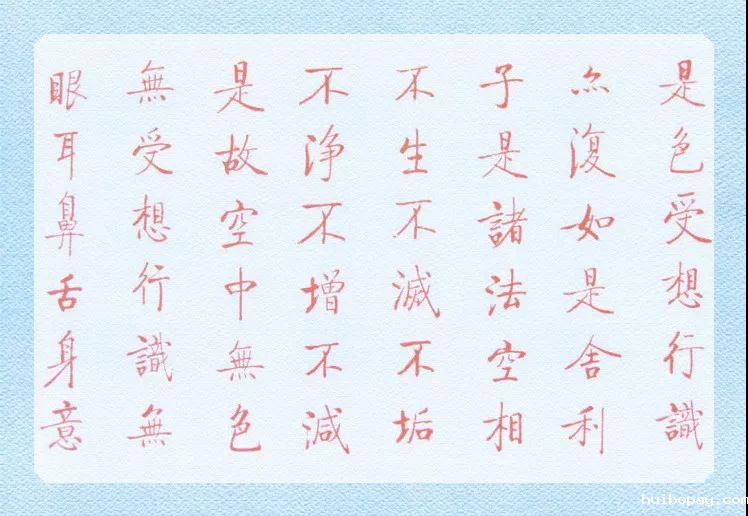 是色受想行識
亦復如是舍利
子是諸法空相
不生不滅不垢
不淨不增不減
是故空中無色
無受想行識無
眼耳鼻舌身意
huibopay.com